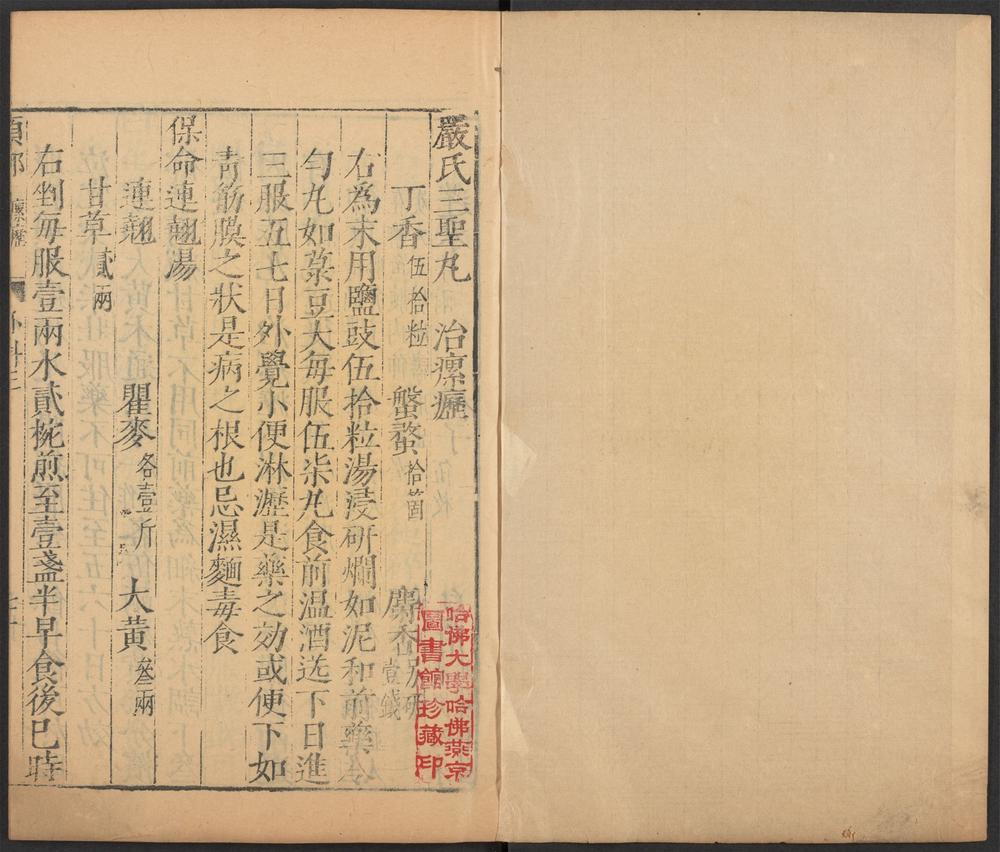 嚴氏三聖丸 治瘰癧
丁香伍拾粒 盤蝥拾箇 麝香另研壹錢
右為末用鹽豉伍拾粒湯浸研爛如泥和前藥令
勻丸如菉豆大每服伍柒丸食前温酒送下日進
三服五七日外覺小便淋瀝是藥之効或便下如
青筋膜之狀是病之根也忌濕麵毒食
保命連翹湯
連翹 瞿麥各壹斤 大黄叄兩
甘草貳兩
右剉每服壹兩水貳椀煎至壹盞半早食後巳時
項部 瘰癧 外科三
哈佛大學哈佛燕京
圖書館珍藏印